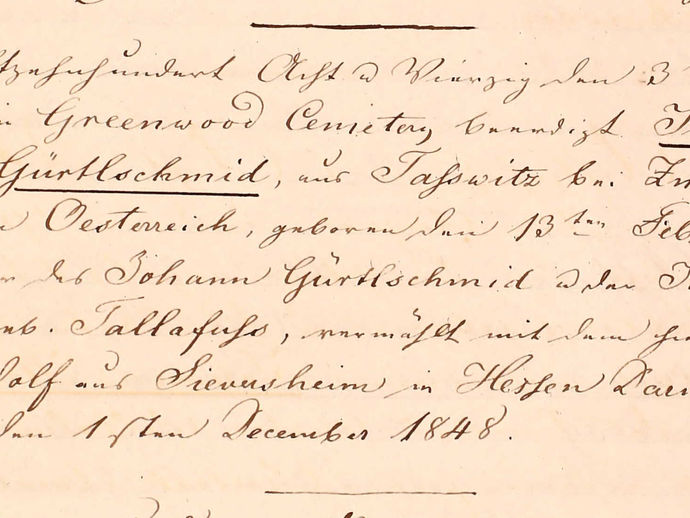 tzehnhundert Acht u Vierzig den 3
in Greenwood Cemetery beerdigt
Gürtlschmid, aus Tasswitz bei Zn
Oesterreich, geboren den 13ten Feb
des Johann Gürtlschmid u der
geb. Tallafuss, vermählt mit dem
aus Sieversheim in Hessen Darm
den 1sten December 1848.